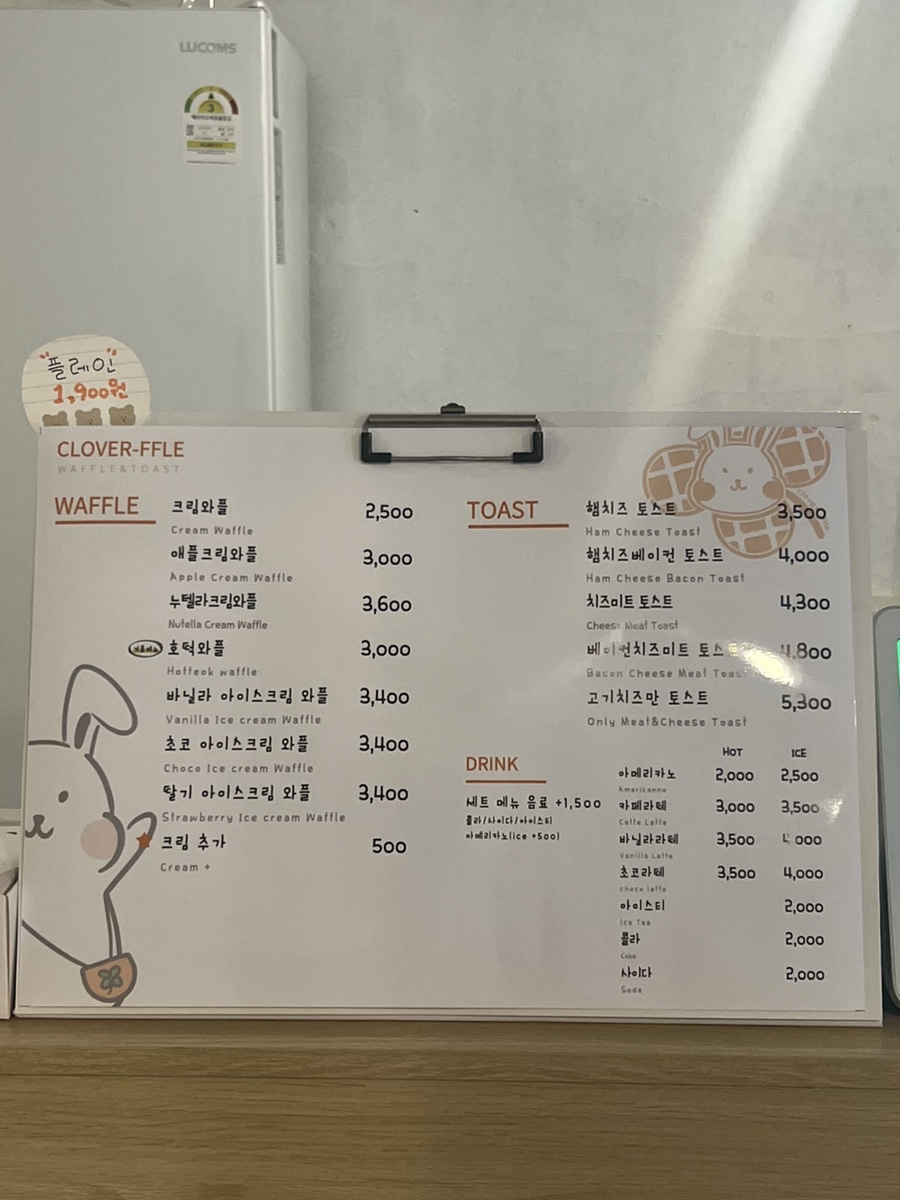 LUCOMS
3
플레인
1,900원
CLOVER-FFLE
WAFFLE&TOAST
WAFFLE
크림와플 2,500
Cream Waffle
애플크림와플 3,000
Apple Cream Waffle
누텔라크림와플 3,600
Nutella Cream Waffle
호떡와플 3,000
Hotteok waffle
바닐라 아이스크림 와플 3,400
Vanilla Ice cream Waffle
초코 아이스크림 와플 3,400
Choco Ice cream Waffle
딸기 아이스크림 와플 3,400
Strawberry Ice cream Waffle
크림 추가 500
Cream +
TOAST
햄치즈 토스트 3,500
Ham Cheese Toast
햄치즈베이컨 토스트 4,000
Ham Cheese Bacon Toast
치즈미트 토스트 4,300
Cheese Meat Toast
베이컨치즈미트 토스트 4,800
Bacon Cheese Meat Toast
고기치즈만 토스트 5,300
Only Meat&Cheese Toast
DRINK
세트 메뉴 음료 +1,500
콜라/사이다/아이스티
아메리카노(ice +500)
HOT ICE
아메리카노 2,000 2,500
Americanno
카페라떼 3,000 3,500
Caffe Latte
바닐라라떼 3,500 4,000
Vanilla Latte
초코라떼 3,500 4,000
choco latte
아이스티 2,000
Ice Tea
콜라 2,000
Coke
사이다 2,000
Soda